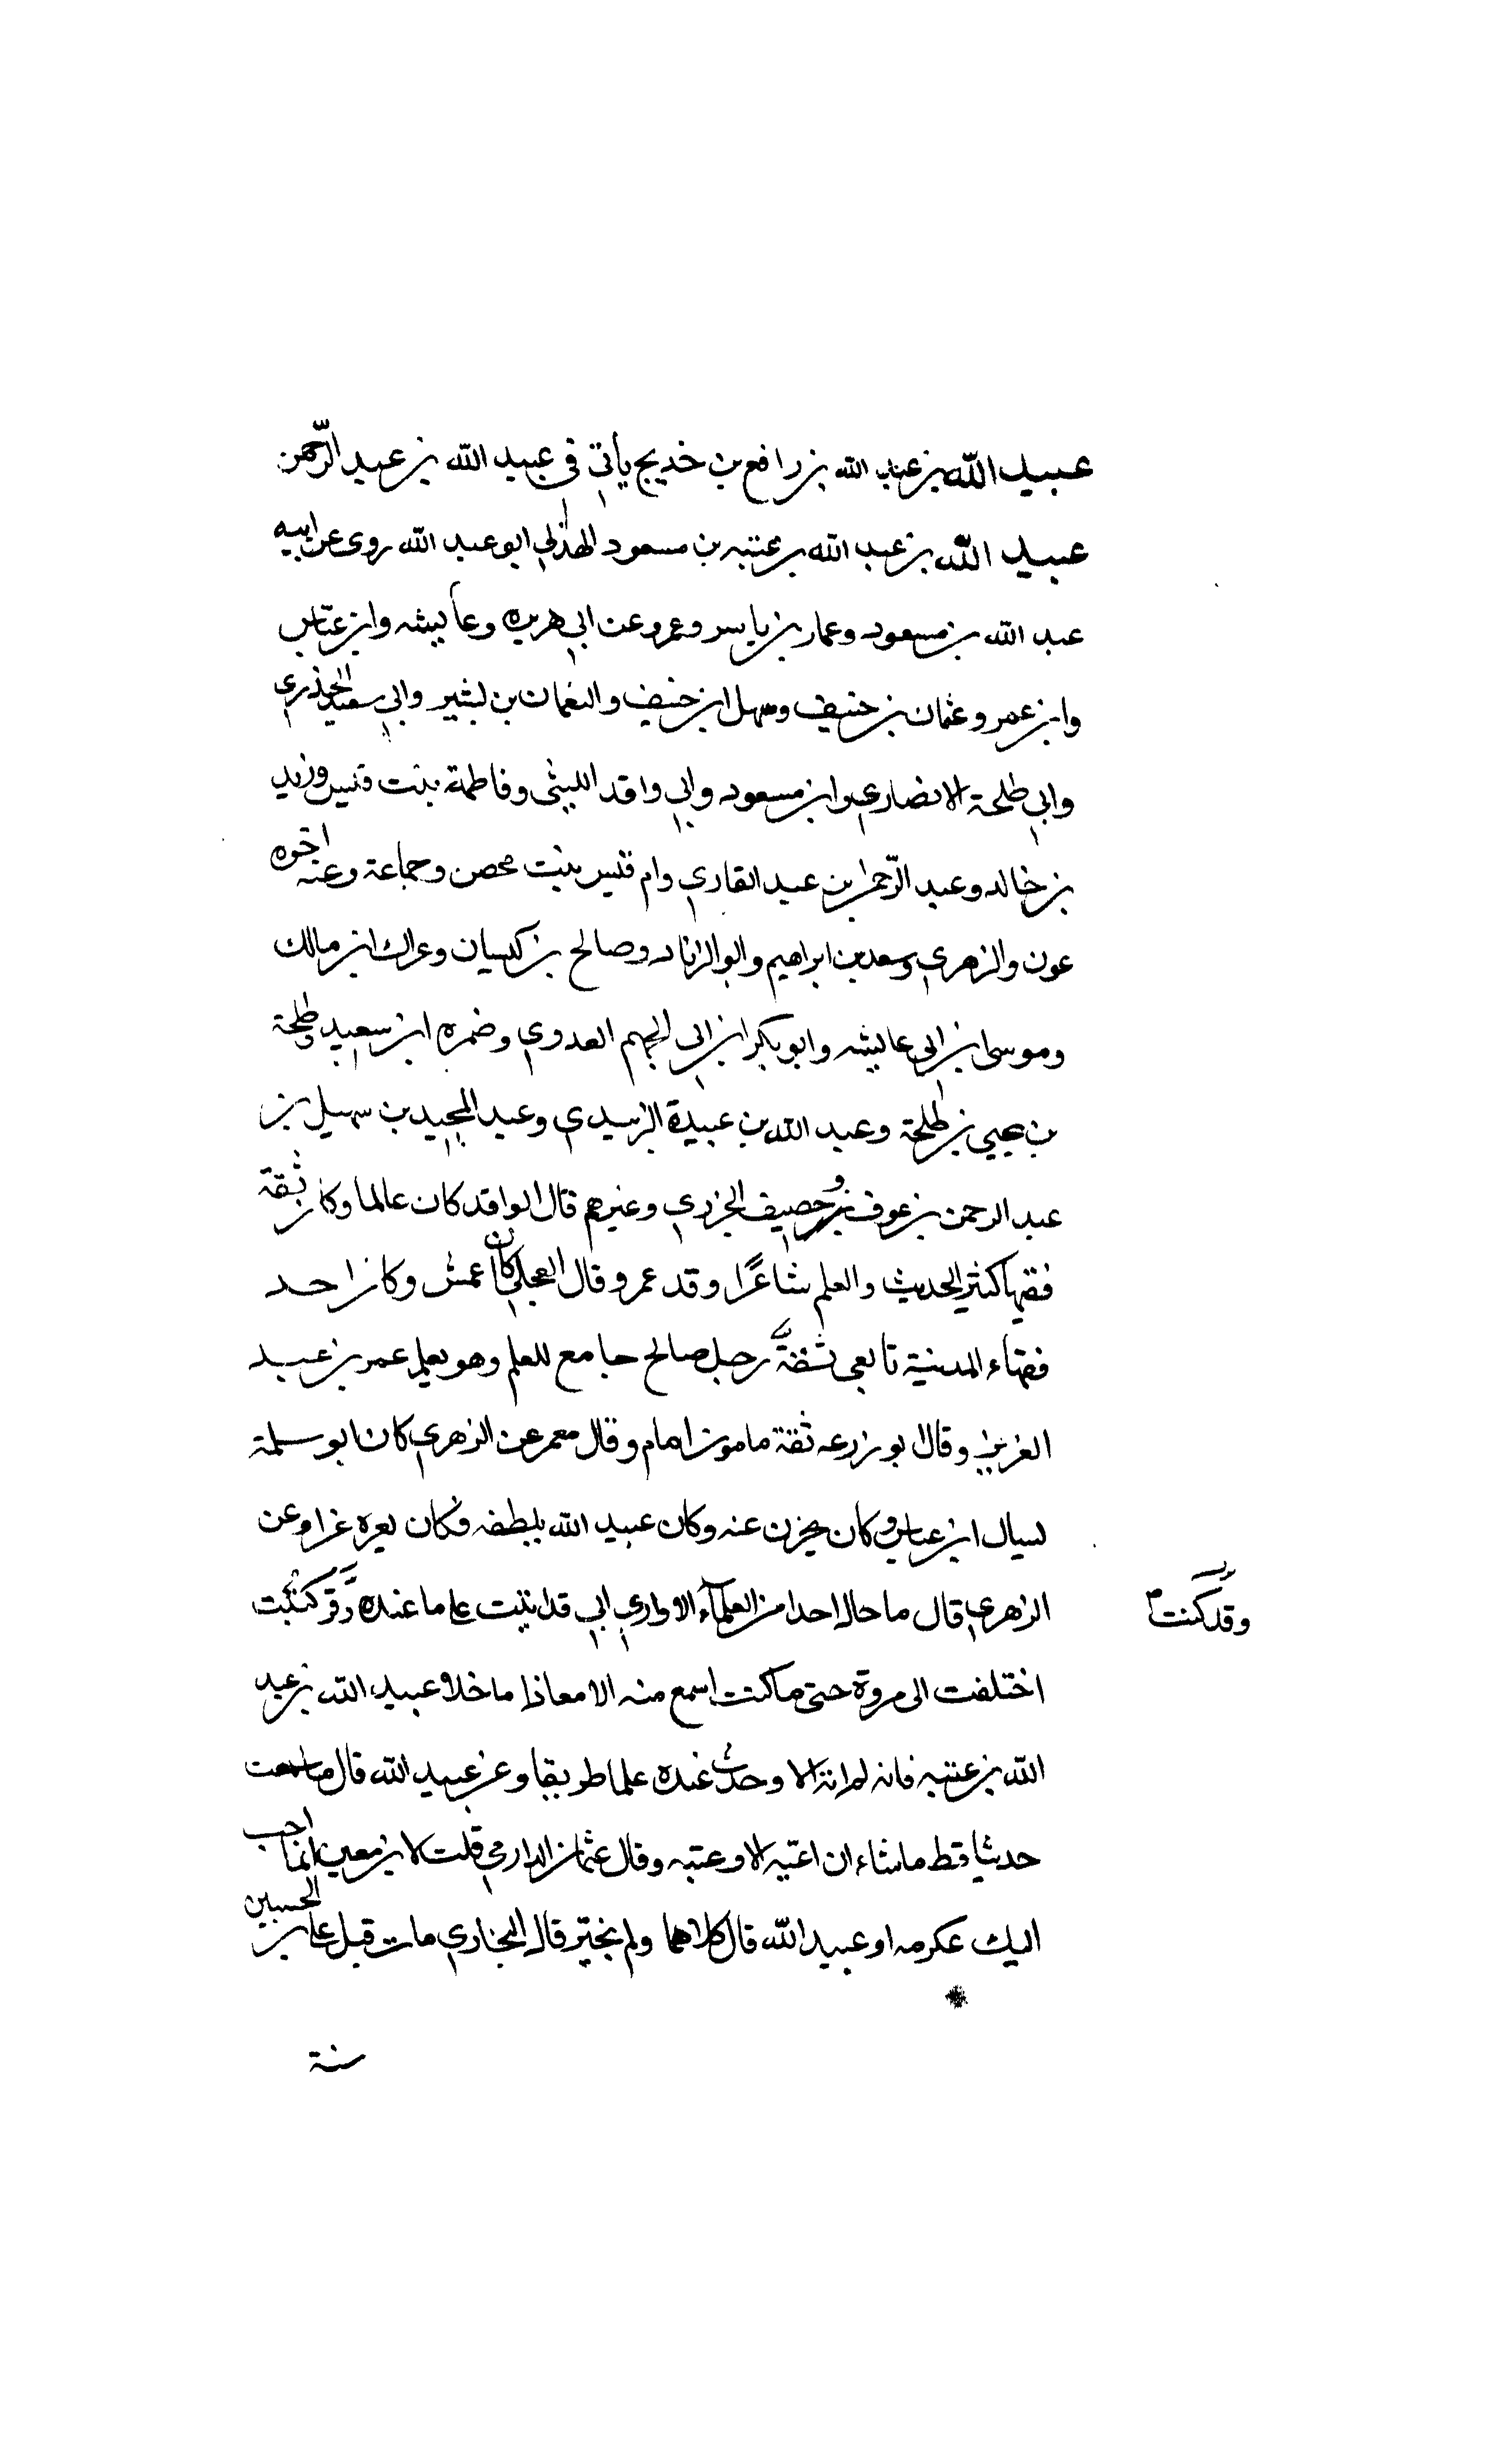 عبيد الله بن عبد الله بن رافع بن خديج يأتي في عبيد الله بن عبد الرحمن
عبيد الله بن عبد الله بن عتبه بن مسعود الهذلي ابو عبد الله روى عن ابيه
عبد الله بن مسعود وعمار بن ياسر وعمر وعن ابي هريره وعايشه وابن عباس
وابن عمر وعثمان بن حنيف وسهل ابن حنيف والنعمان بن بشير وابي سعيد الخذري
وابي طلحة الانصاري وابن مسعود وابي واقد الليثى وفاطمة بنت قيس وزيد
بن خالد وعبد الرحمن بن عبد القاري وام قيس بنت محصن وجماعة وعنه اخوه
عون والزهري وسعد بن ابراهيم وابو الزناد وصالح بن كيسان وعراك ابن مالك
وموسى ابن ابي عايشه وابو بكر ابن ابي الجهم العدوي وضمره ابن سعيد وطلحة
بن يحيي بن طلحة وعبد الله بن عبيدة الربيدي وعبد المجيد بن سهيل بن
عبد الرحمن بن عوف وخصيف الجزري وغيرهم قال الواقد كان عالما وكان ثقة
فقيها كثير الحديث والعلم شاعرًا وقد عمر وقال العجلي كان اعمش وكان احد
فقهاء المدينة تابعى ثقة رجل صالح جامع للعلم وهو معلم عمر بن عبد
العزيز وقال ابو زرعه ثقة مامون امام وقال معمر عن الزهري كان ابو سلمة
يسال ابن عباس وكان يخزن عنه وكان عبيد الله يلطفه فكان يعره غرا وعن
الزهري قال ما جال احدا من العلمآء الا واري اني قد اتيت على ما عنده
وقد كنت
اختلفت الى عروة حتى ما كنت اسمع منه الا معاذا ما خلا عبيد الله بن عبد
الله بن عتبه فانه لم اته الا وجدت عنده علما طريفا وعن عبيد الله قال ما سمعت
حديثا قط ما شاء ان اعيه الا وعيته وقال عثمان الدارمي قلت لابن معين ايما احب
اليك عكرمه او عبيد الله قال كلاهما ولم يخير قال البخاري مات قبل علي بن الحسين
سنة